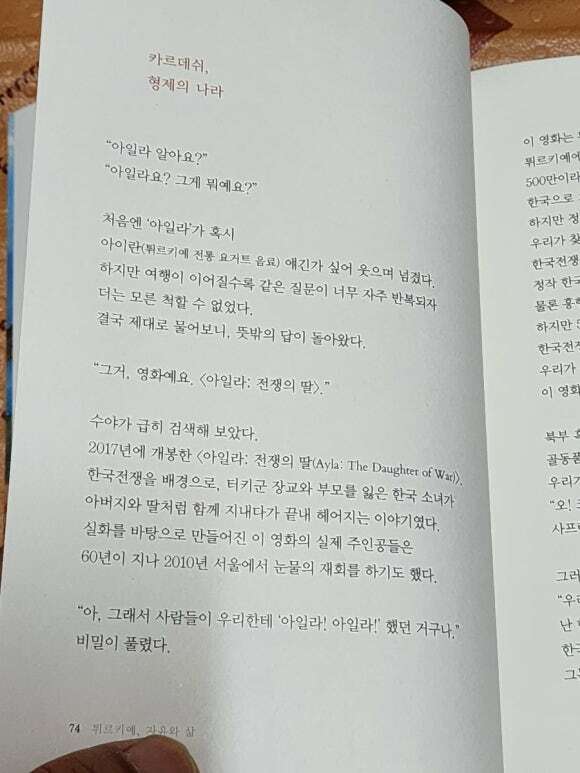 카르데쉬,
형제의 나라
“아일라 알아요?”
“아일라요? 그게 뭐예요?”
처음엔 ‘아일라’가 혹시
아이란(튀르키예 전통 요거트 음료) 얘긴가 싶어 웃으며 넘겼다.
하지만 여행이 이어질수록 같은 질문이 너무 자주 반복되자
더는 모른 척할 수 없었다.
결국 제대로 물어보니, 뜻밖의 답이 돌아왔다.
“그거, 영화예요. 〈아일라: 전쟁의 딸〉.”
수야가 급히 검색해 보았다.
2017년에 개봉한 〈아일라: 전쟁의 딸(Ayla: The Daughter of War)〉.
한국전쟁을 배경으로, 터키군 장교와 부모를 잃은 한국 소녀가
아버지와 딸처럼 함께 지내다가 끝내 헤어지는 이야기였다.
실화를 바탕으로 만들어진 이 영화의 실제 주인공들은
60년이 지나 2010년 서울에서 눈물의 재회를 하기도 했다.
“아, 그래서 사람들이 우리한테 ‘아일라! 아일라!’ 했던 거구나.”
비밀이 풀렸다.
74 튀르키예, 자유와 삶
이 영화는
튀르키예에
500만이라
한국으로
하지만 정
우리가 찾
한국전쟁
정작 한국
물론 흥
하지만 5
한국전
우리가
이 영화
북부
골동품
우리가
“오!
사프란
그러
“우리
난
한국